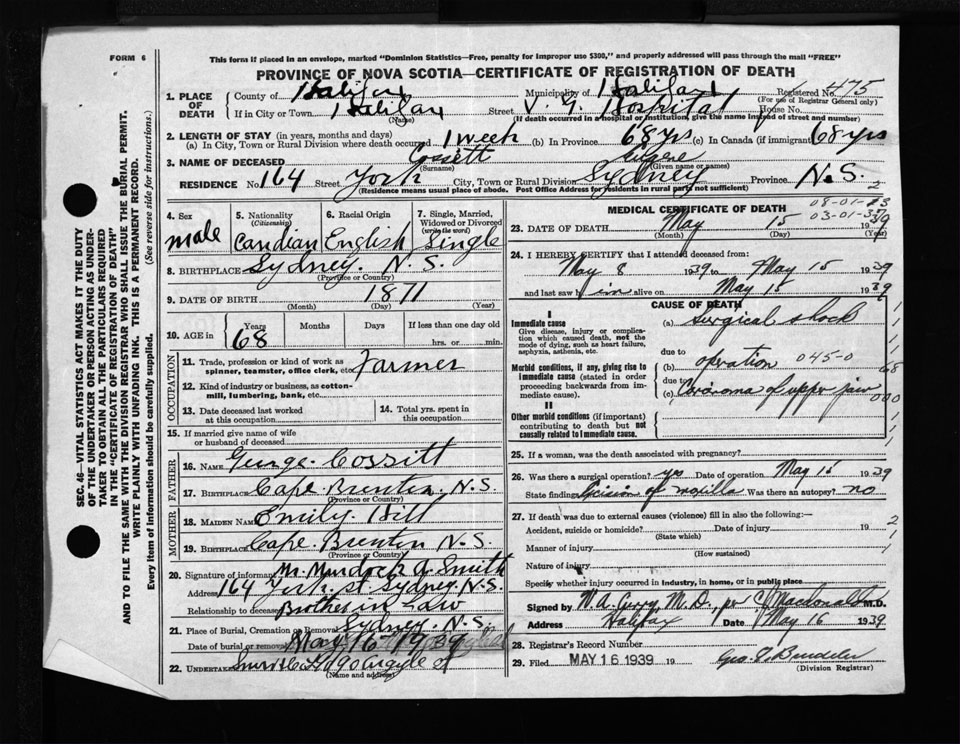 FORM 6
This form if placed in an envelope, marked "Dominion Statistics—Free, penalty for improper use $300," and properly addressed will pass through the mail "FREE"
PROVINCE OF NOVA SCOTIA—CERTIFICATE OF REGISTRATION OF DEATH
1. PLACE OF DEATH County of Halifax Municipality of Halifax Registered No. 475
(For use of Registrar General only)
If in City or Town Halifax Street V. G. Hospital House No.
(Name) (If death occurred in a hospital or institution, give the name instead of street and number)
2. LENGTH OF STAY (in years, months and days)
(a) In City, Town or Rural Division where death occurred 1 week (b) In Province 68 yrs (c) In Canada (if immigrant) 68 yrs
3. NAME OF DECEASED Cossett
(Surname) (Given name or names)
RESIDENCE No. 164 Street York City, Town or Rural Division Sydney Province N.S.
(Residence means usual place of abode. Post Office Address for residents in rural parts not sufficient) 2
4. Sex male
5. Nationality (Citizenship) Candian
6. Racial Origin English
7. Single, Married, Widowed or Divorced (write the word) Single
8. BIRTHPLACE Sydney. N.S.
(Province or Country)
9. DATE OF BIRTH 1871
(Month) (Day) (Year)
10. AGE in Years 68 Months Days If less than one day old hrs. or min.
OCCUPATION
11. Trade, profession or kind of work as spinner, teamster, office clerk, etc. Farmer
12. Kind of industry or business, as cotton-mill, lumbering, bank, etc.
13. Date deceased last worked at this occupation
14. Total yrs. spent in this occupation
15. If married give name of wife or husband of deceased
FATHER
16. NAME George Cossitt
17. BIRTHPLACE Cape Breton. N.S.
(Province or Country)
MOTHER
18. MAIDEN NAME Emily Hill
19. BIRTHPLACE Cape Breton N.S.
(Province or Country)
20. Signature of informant Mr. Murdock A Smith
Address 164 York St. Sydney N.S.
Relationship to deceased Brother in Law
21. Place of Burial, Cremation or Removal Sydney. N.S.
Date of burial or removal May 16 1939
22. UNDERTAKER Argyle St
(Name and address)
MEDICAL CERTIFICATE OF DEATH
23. DATE OF DEATH May 15 1939
(Month) (Day) (Year)
24. I HEREBY CERTIFY that I attended deceased from:
May 8 1939 to May 15 1939
and last saw him alive on May 15 1939
CAUSE OF DEATH
I
Immediate cause (a) Surgical shock
Give disease, injury or complication which caused death, not the mode of dying, such as heart failure, asphyxia, asthenia, etc.
due to
Morbid conditions, if any, giving rise to immediate cause (stated in order proceeding backwards from immediate cause). (b) operation 045-0
due to
(c) Carcinoma of upper jaw
II
Other morbid conditions (if important) contributing to death but not causally related to immediate cause.
25. If a woman, was the death associated with pregnancy?
26. Was there a surgical operation? yes Date of operation May 15 1939
State findings Was there an autopsy? no
27. If death was due to external causes (violence) fill in also the following:—
Accident, suicide or homicide? Date of injury 19
(State which)
Manner of injury
(How sustained)
Nature of injury
Specify whether injury occurred in industry, in home, or in public place
Signed by M.D.
Address Halifax Date May 16 1939
28. Registrar's Record Number
29. Filed MAY 16 1939 19
(Division Registrar)
SEC. 46—VITAL STATISTICS ACT MAKES IT THE DUTY OF THE UNDERTAKER OR PERSON ACTING AS UNDERTAKER TO OBTAIN ALL THE PARTICULARS REQUIRED IN THE "CERTIFICATE OF REGISTRATION OF DEATH" AND TO FILE THE SAME WITH THE DIVISION REGISTRAR WHO SHALL ISSUE THE BURIAL PERMIT.
WRITE PLAINLY WITH UNFADING INK. THIS IS A PERMANENT RECORD.
Every item of information should be carefully supplied. (See reverse side for instructions.)